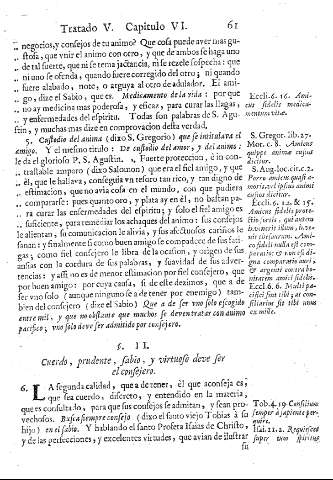 Tratado V. Capitulo VI. 61
negocios, y consejos de tu animo? Que cosa puede aver mas gu-
stosa, que vnir el animo con otro, y que de ambos se haga uno
de tal suerte, que ni se tema jactancia, ni se rezele sospecha: que
ni uno se ofenda, quando fuere corregido del otro; ni quando
fuere alabado, note, o arguya al otro de adulador. El ami-
go, dize el Sabio, que es. Medicamento de la vida: por que
no ay medicina mas poderosa, y eficaz, para curar las llagas,
y enfermedades del espiritu. Todas son palabras de S. Agu-
stin, y muchas mas dize en comprovacion desta verdad.
5. Custodio del animo (dixo S. Gregorio) que se intitulava el
amigo. Y el mesmo titulo: De custodio del amor, y del animo:
le da el glorioso P. S. Agustin. Fuerte proteccion, è in con-
trastable amparo (dixo Salomon) que era el fiel amigo, y que
èl, que le hallava, conseguia vn tesoro tan rico, y tan digno de
estimacion, que no avia cosa en el mundo, con que pudiera
compararse: pues quanto oro, y plata ay en èl, no bastan pa-
ra curar las enfermedades del espiritu; y solo el fiel amigo es
suficiente, para remediar los achaques del animo: sus consejos
le alientan, su comunicacion le alivia, y sus afectuosos cariños le
sanan: y finalmente si como buen amigo se compadece de sus fati-
gas; como fiel consejero le libra de la ocasion, y origen de sus
ansias con la cordura de sus palabras, y suavidad de sus adver-
tencias: y assi no es de menor estimacion por fiel consejero, que
por buen amigo: por cuya causa, si de èlle deximos, que a de
ser vno solo (aunque ninguno se a de tener por enemigo) tam-
bien del consejero (dize el Sabio) Que a de ser vno solo escogido
entre mil, y que no obstante que muchos se deven tratar con animo
pacifico, vno solo deve ser admitido por consejero.
Eccli. 6. 16. Ami-
cus fidelis medica-
mentum vitæ.
S. Gregor. lib. 27.
Mor. c. 8. Amicus
quippe animæ custos
dicitur.
S. Aug. loc. cit. c. 2.
Eccli. 6. 6. Multi pa-
cifici sint tibi, at con-
siliarius sit tibi unus
ex mille.
§. II.
Cuerdo, prudente, sabio, y virtuoso deve ser
el consejero.
6. LA segunda calidad, que a de tener, èl que aconseja es;
que sea cuerdo, discreto, y entendido en la materia,
que es consultado, para que sus consejos se admitan, y sean pro-
vechosos. Busca siempre consejo (dixo el santo viejo Tobias à su
hijo) en el sabio. Y hablando el santo Profeta Isaias de Christo,
y de las perfecciones, y excelentes virtudes, que avian de ilustrar
su
Tob. 4. 19. Consilium
semper à sapiente per-
quire.
Isai. 11. 2. Requiescet
super eum spiritus